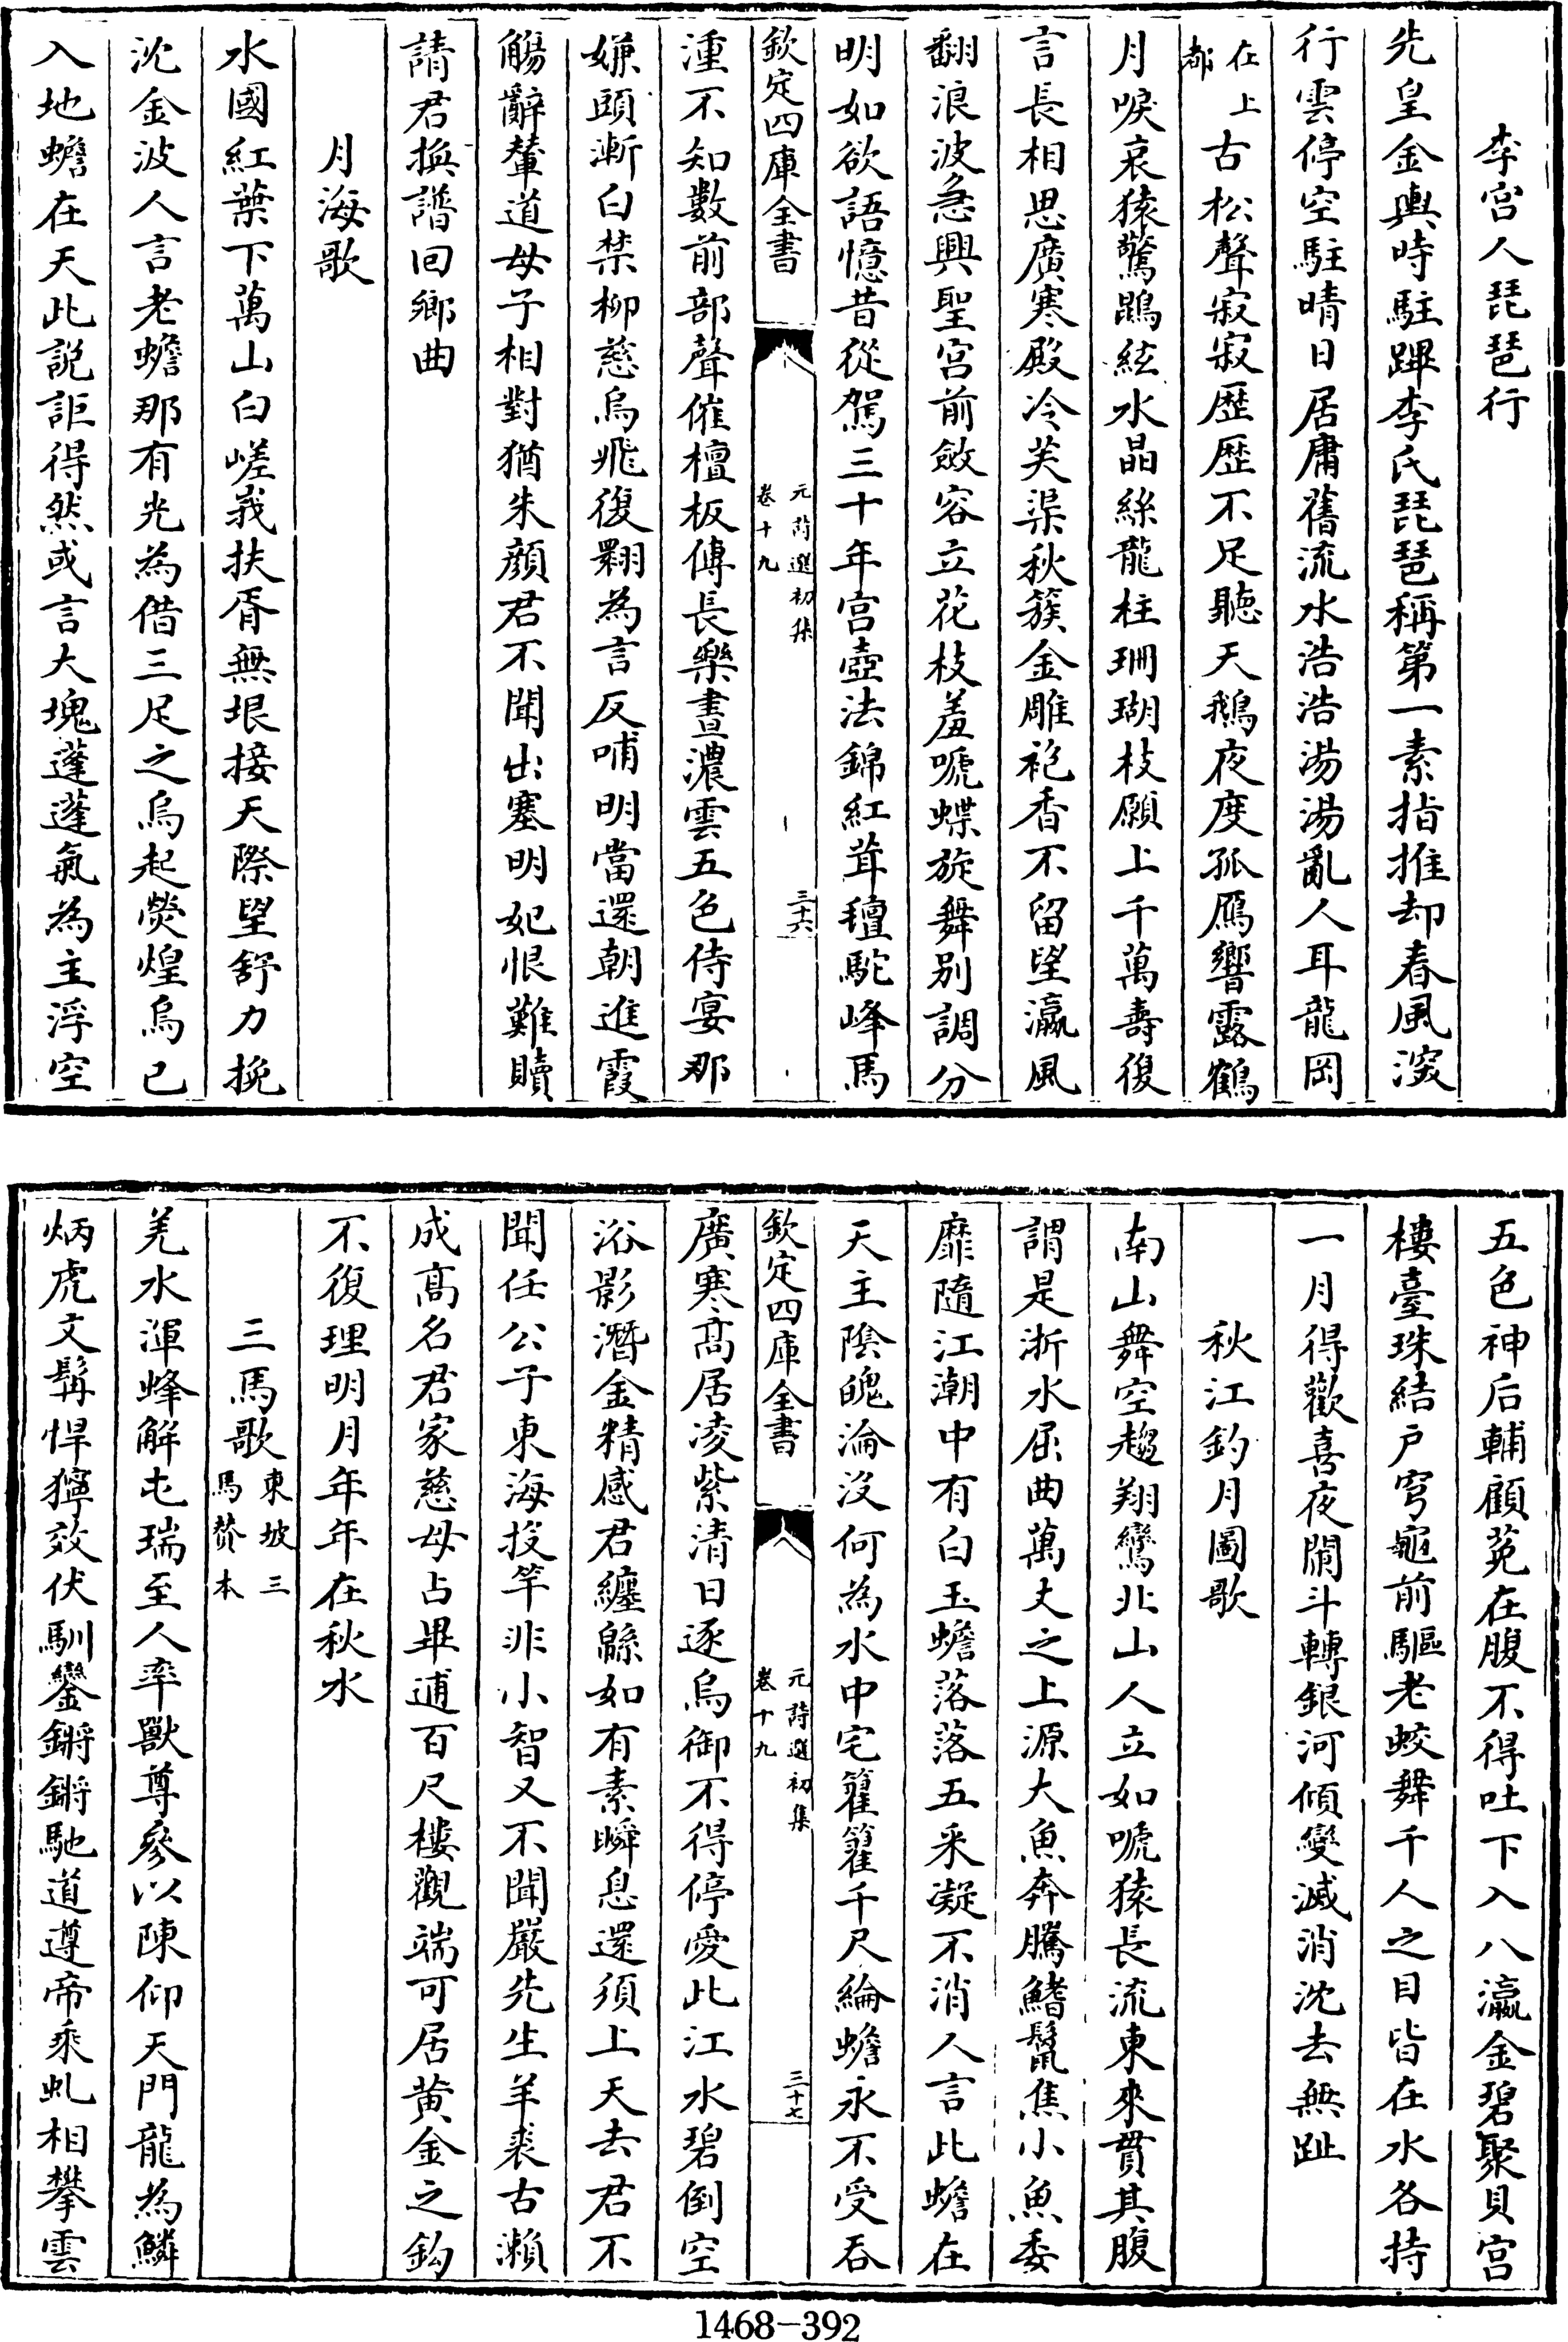 李宫人琵琶行
先皇金輿時駐蹕李氏琵琶稱第一素指推却春風深
行雲停空駐晴日居庸舊流水浩浩湯湯亂人耳龍岡
在上都
古松聲寂寂歴歴不足聽天鵝夜度孤鴈響露鶴
月唳哀猿驚鵾絃水晶絲龍柱珊瑚枝願上千萬壽復
言長相思廣寒殿冷芙渠秋簇金雕袍香不留望瀛風
翻浪波急興聖宫前斂容立花枝羞嗁蝶旋舞别調分
明如欲語憶昔從駕三十年宫壺法錦紅茸氊駝峰馬
欽定四庫全書
元詩選初集
卷十九
三十六
湩不知數前部聲催檀板傳長樂晝濃雲五色侍宴那
嫌頭漸白禁柳慈烏飛復翾為言反哺明當還朝進霞
觴辭輦道母子相對猶朱顔君不聞出塞明妃恨難贖
請君換譜回鄉曲
月海歌
水國紅葉下萬山白嵯峩扶胥無垠接天際望舒力挽
沈金波人言老蟾那有光為借三足之烏起熒煌烏已
入地蟾在天此説詎得然或言大塊蓬蓬氣為主浮空
五色神后輔顧菟在腹不得吐下入八瀛金碧聚貝宫
樓臺珠結户穹龜前驅老蛟舞千人之目皆在水各持
一月得歡喜夜闌斗轉銀河傾變滅消沈去無趾
秋江釣月圖歌
南山舞空趨翔鸞北山人立如嗁猿長流東來貫其腹
謂是浙水屈曲萬丈之上源大魚奔騰鰭鬣焦小魚委
靡隨江潮中有白玉蟾落落五采凝不消人言此蟾在
天主陰魄淪没何為水中宅籊籊千尺綸蟾永不受吞
欽定四庫全書
元詩選初集
卷十九
三十七
廣寒高居凌紫清日逐烏御不得停愛此江水碧倒空
浴影潛金精感君纏緜如有素瞬息還須上天去君不
聞任公子東海投竿非小智又不聞嚴先生羊裘古瀨
成高名君家慈母占畢逋百尺樓觀端可居黄金之鈎
不復理明月年年在秋水
三馬歌
東坡三
馬贊本
羌水渾蜂解屯瑞至人率獸尊參以陳仰天門龍為鱗
炳虎文髯悍獰效伏馴鑾鏘鏘馳道遵帝乘虬相攀雲
1468-392